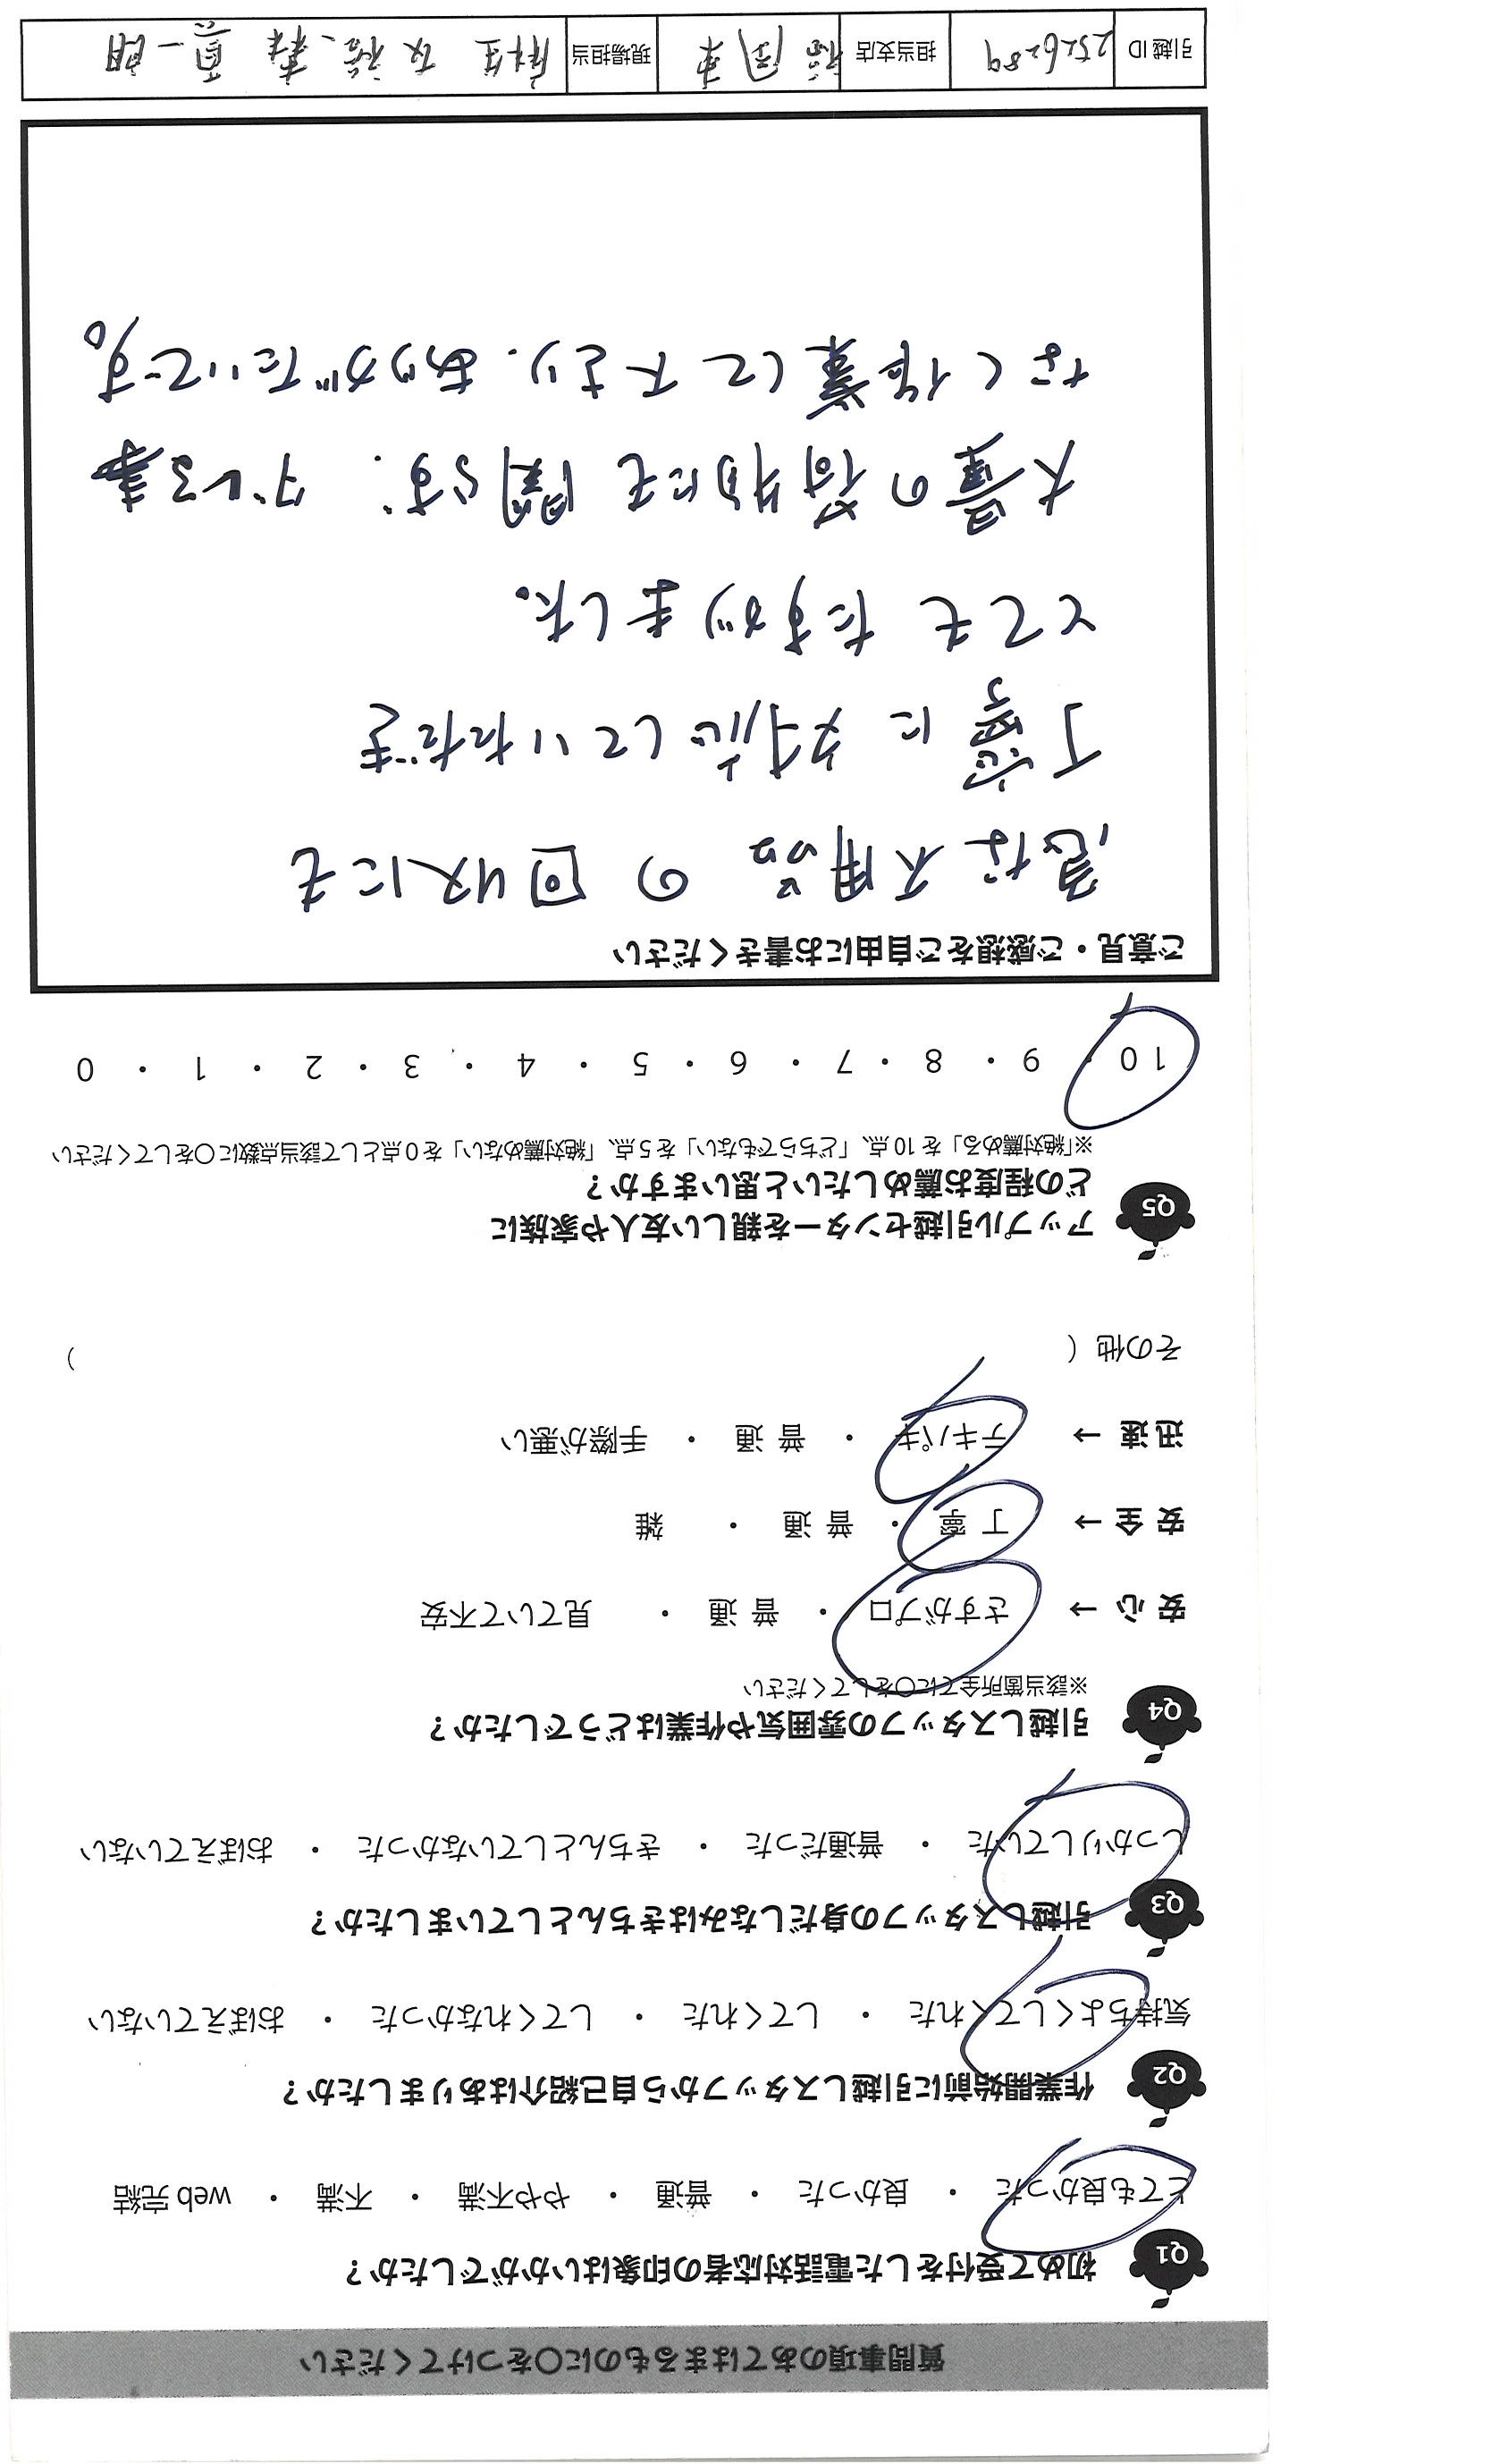 質問事項のあてはまるものに〇をつけてください
Q1 初めて受付をした電話対応者の印象はいかがでしたか？
とても良かった ・ 良かった ・ 普通 ・ やや不満 ・ 不満 ・ web 完結
Q2 作業開始前に引越しスタッフから自己紹介はありましたか？
気持ちよくしてくれた ・ してくれた ・ してくれなかった ・ おぼえていない
Q3 引越しスタッフの身だしなみはきちんとしていましたか？
しっかりしていた ・ 普通だった ・ きちんとしていなかった ・ おぼえていない
Q4 引越しスタッフの雰囲気や作業はどうでしたか？
※該当箇所全てに〇をしてください
安 心 → さすがプロ ・ 普 通 ・ 見ていて不安
安 全 → 丁 寧 ・ 普 通 ・ 雑
迅 速 → テキパキ ・ 普 通 ・ 手際が悪い
その他 ( )
Q5 アップル引越センターを親しい友人や家族に
どの程度お薦めしたいと思いますか？
※「絶対薦める」を 10 点、「どちらでもない」を 5 点、「絶対薦めない」を 0 点として該当点数に〇をしてください
10 ・ 9 ・ 8 ・ 7 ・ 6 ・ 5 ・ 4 ・ 3 ・ 2 ・ 1 ・ 0
ご意見・ご感想をご自由にお書きください
急な不用品の回収にも
丁寧に対応していただき
とてもたすかりました。
大量の荷物にも関らず、イヤな事
なく作業して下さり、ありがたいです。
引越 ID 2526289 担当支店 福岡東 現場担当 麻生 森 真一朗